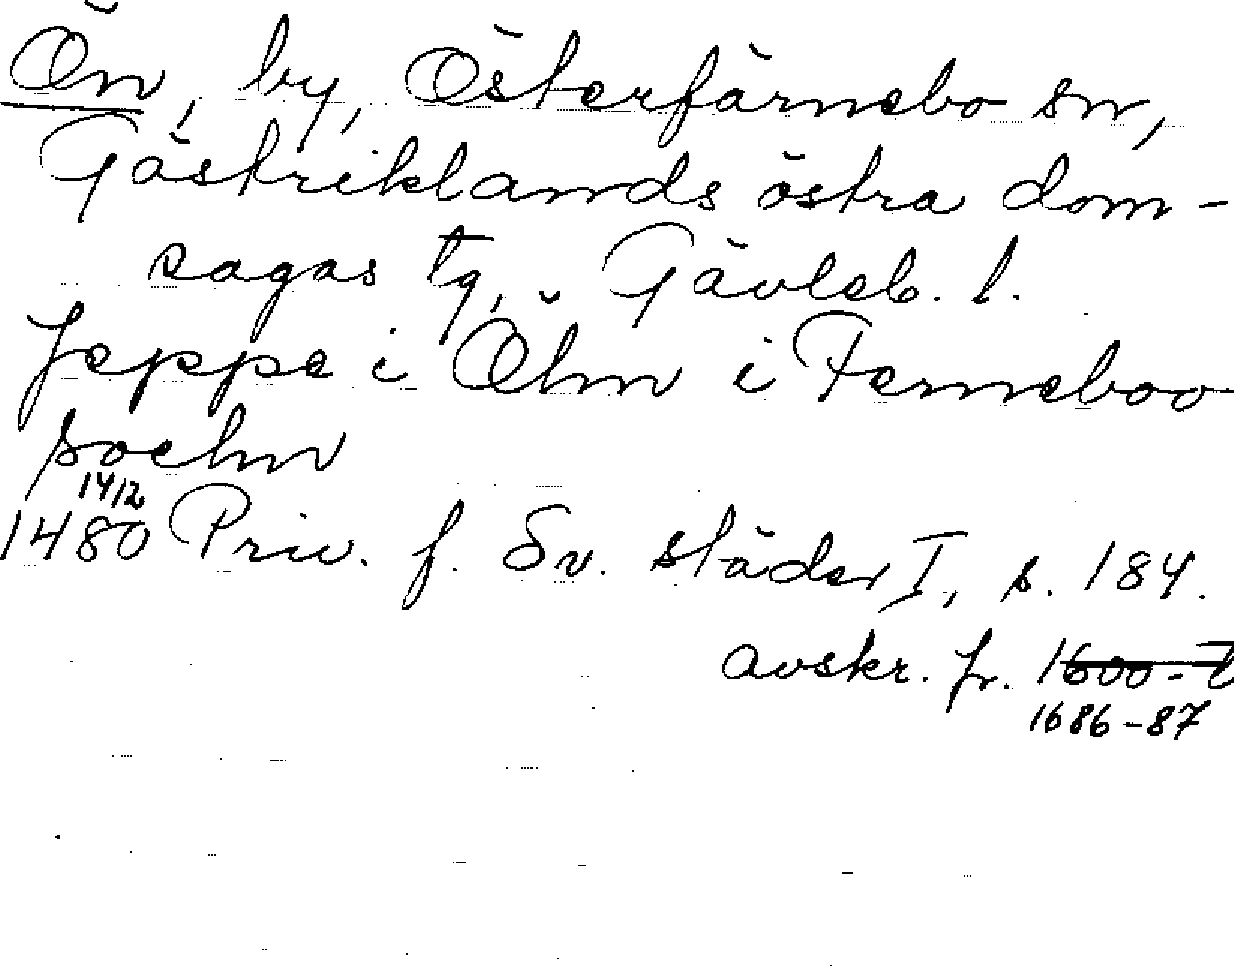 Ön, by, Österfärnebo sn,
Gästriklands östra dom-
sagas tg, Gävleb. l.
Jeppe i Öhn i Ferneboo
sochn
14/12
1480 Priv. f. Sv. städer I, s. 184.
avskr. fr. 1600-t
1686-87